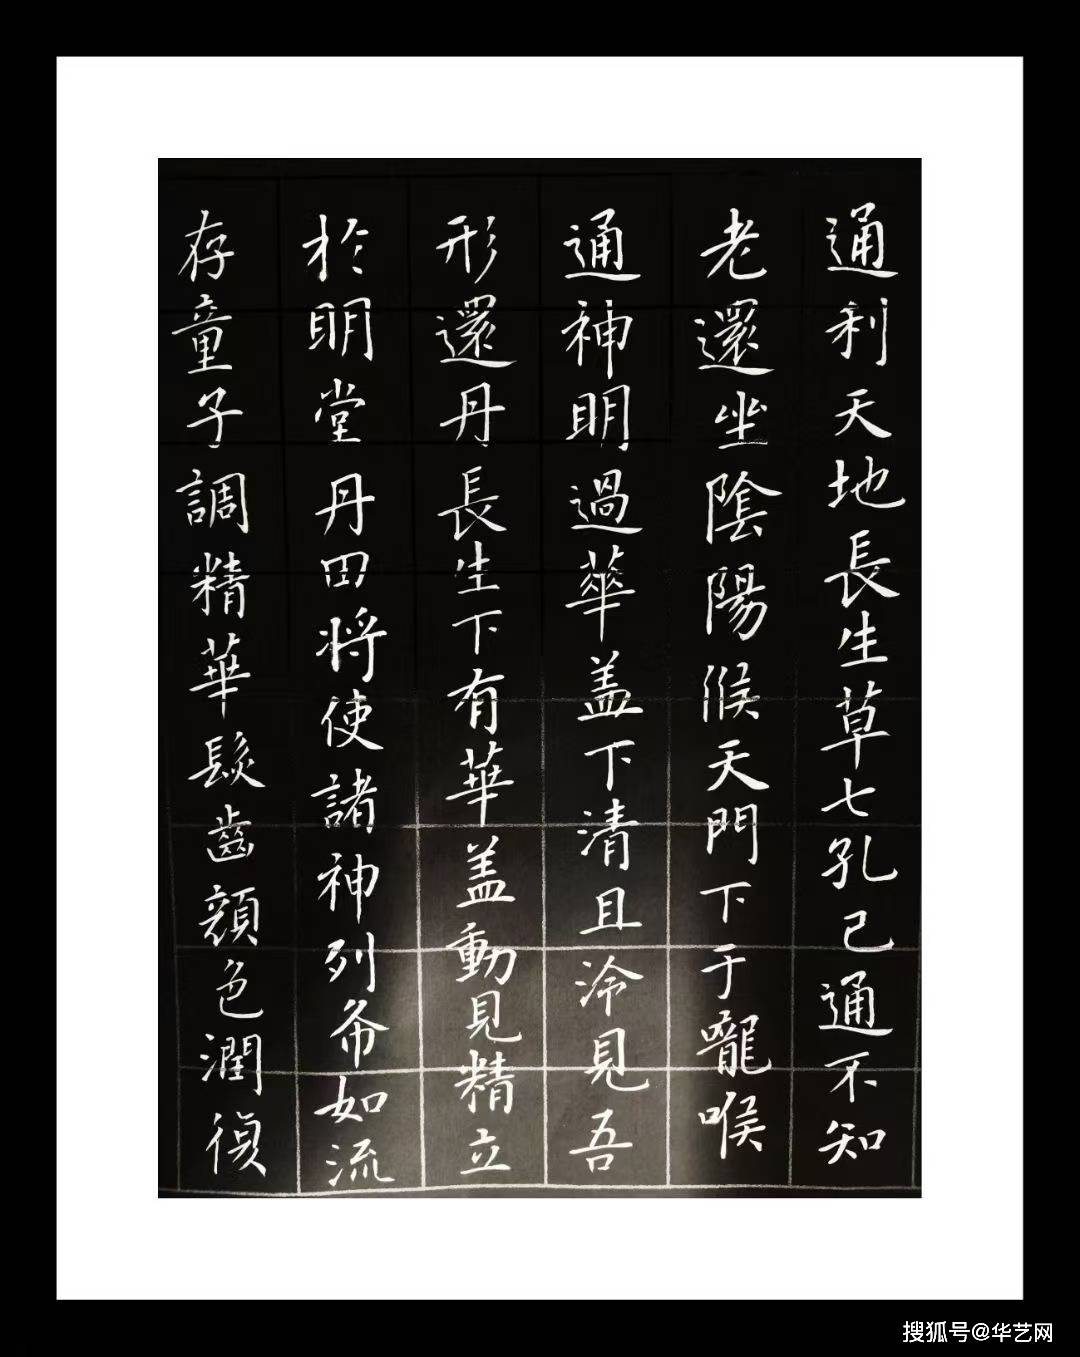 通利天地長生草七孔已通不知
老還坐陰陽候天門下于嚨喉
通神明過華盖下清且泠見吾
形還丹長生下有華盖動見精立
於明堂丹田将使諸神列布如流
存童子調精華髮齒顔色潤復
搜狐号@华艺网